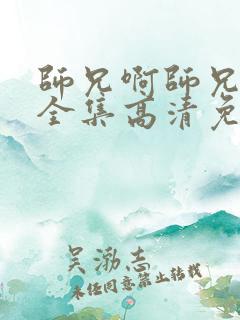 師兄啊師兄
全集高清免
吴渤志
未经同意禁止转载